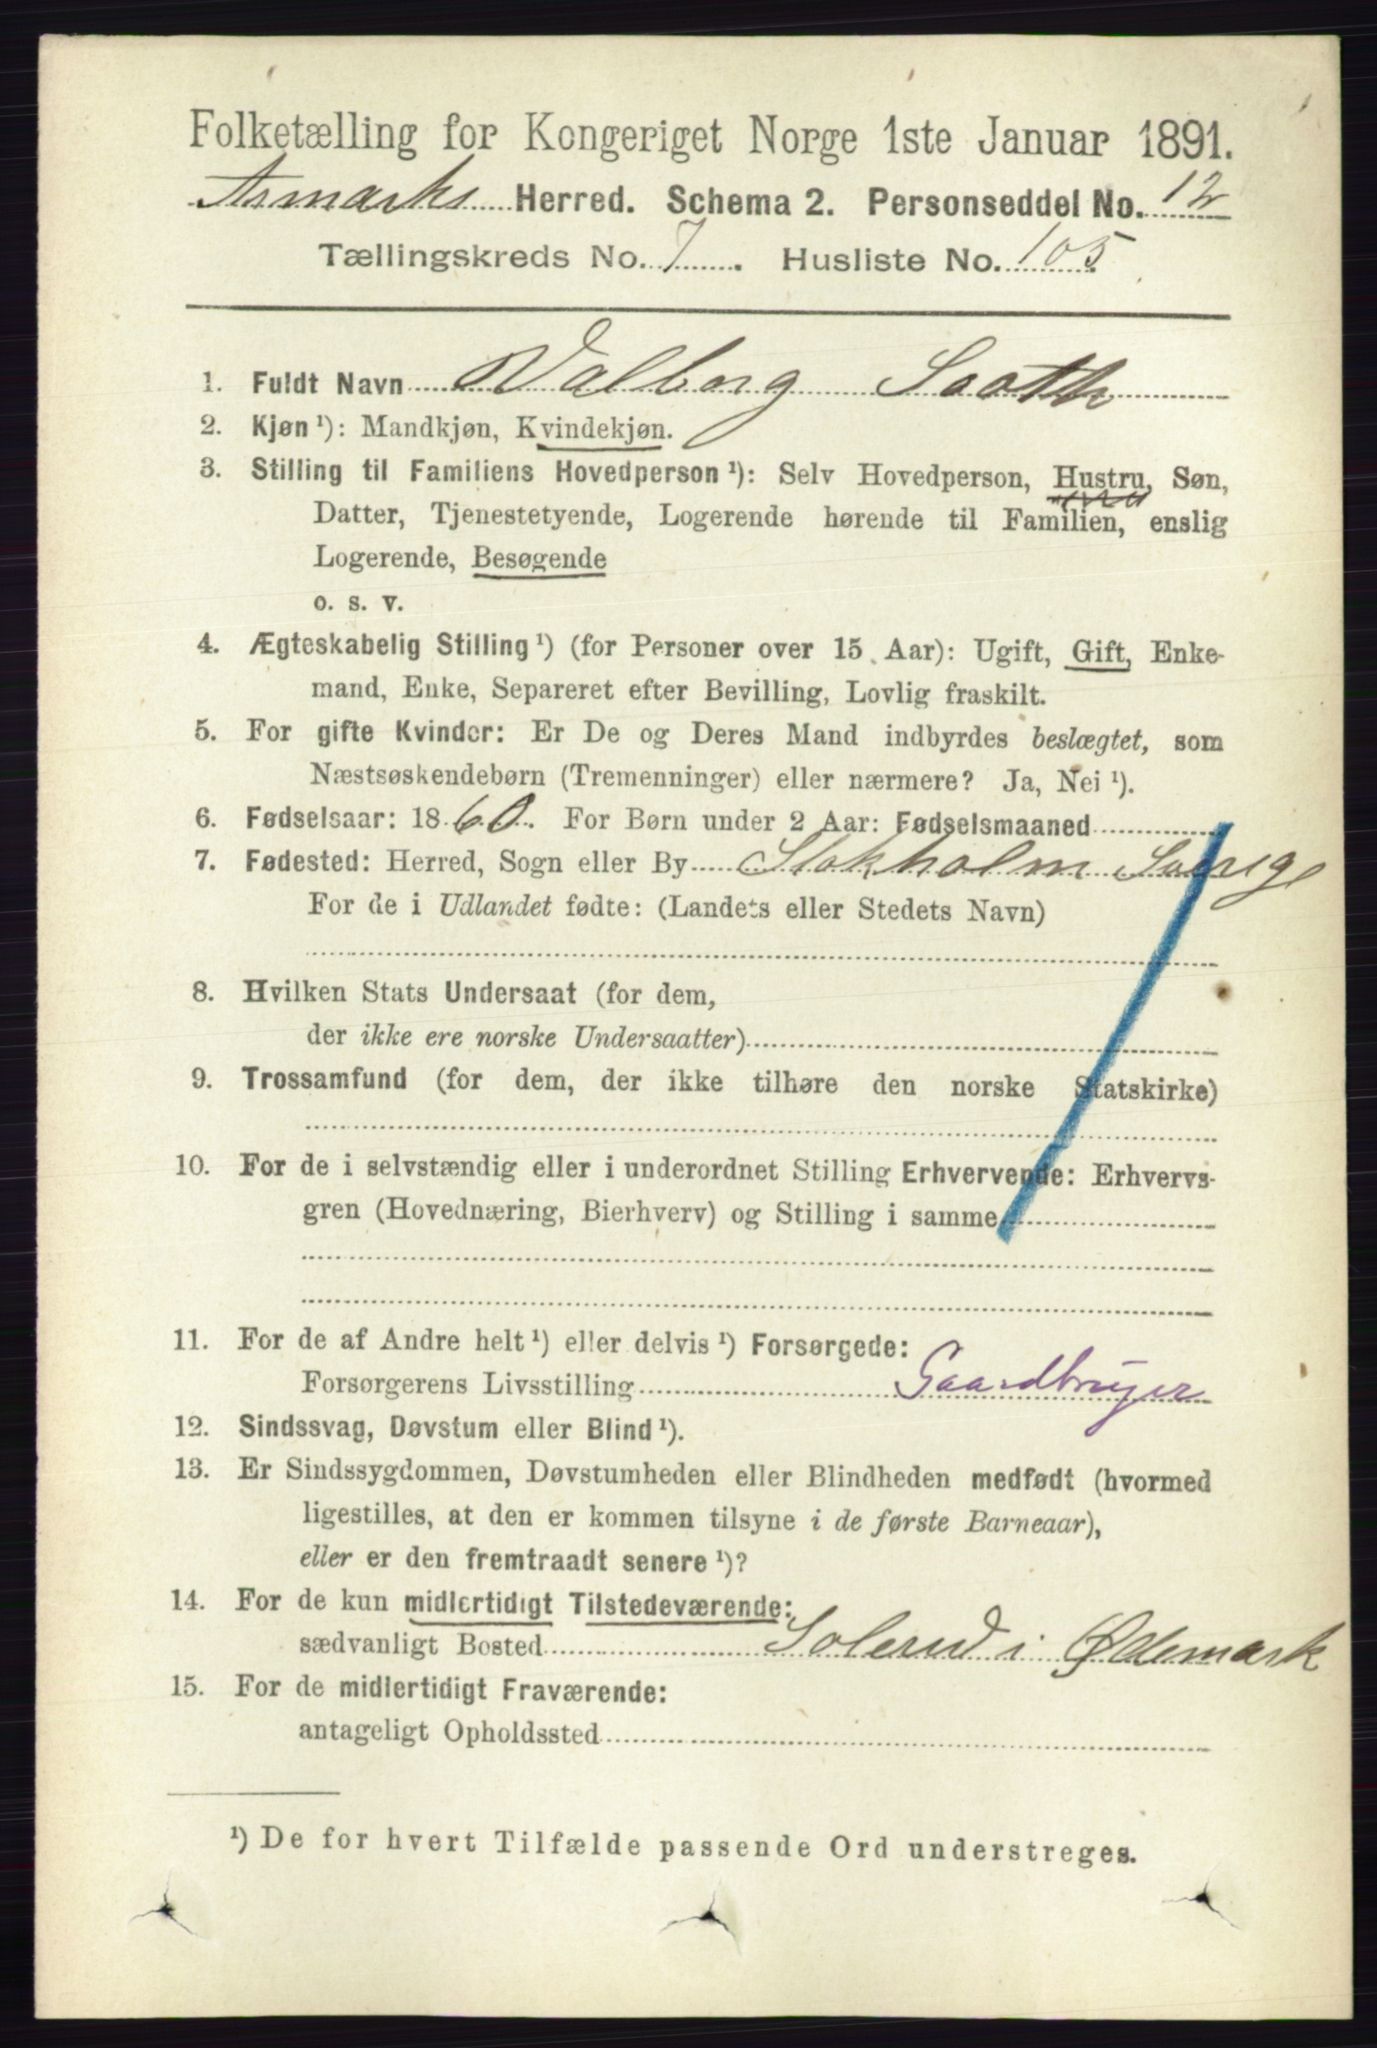 Folketælling for Kongeriget Norge 1ste Januar 1891.
Aremarks Herred. Schema 2. Personseddel No. 12
Tællingskreds No. 7. Husliste No. 105
1. Fuldt Navn Valborg Sooth
2. Kjøn ¹): Mandkjøn, Kvindekjøn.
3. Stilling til Familiens Hovedperson ¹): Selv Hovedperson, Hustru, Søn,
Datter, Tjenestetyende, Logerende hørende til Familien, enslig
Logerende, Besøgende
o. s. v.
4. Ægteskabelig Stilling ¹) (for Personer over 15 Aar): Ugift, Gift, Enke-
mand, Enke, Separeret efter Bevilling, Lovlig fraskilt.
5. For gifte Kvinder: Er De og Deres Mand indbyrdes beslægtet, som
Næstsøskendebørn (Tremenninger) eller nærmere? Ja, Nei ¹).
6. Fødselsaar: 1860. For Børn under 2 Aar: Fødselsmaaned
7. Fødested: Herred, Sogn eller By Stokholm Sverige
For de i Udlandet fødte: (Landets eller Stedets Navn)
8. Hvilken Stats Undersaat (for dem,
der ikke ere norske Undersaatter)
9. Trossamfund (for dem, der ikke tilhøre den norske Statskirke)
10. For de i selvstændig eller i underordnet Stilling Erhvervende: Erhvervs-
gren (Hovednæring, Bierhverv) og Stilling i samme
11. For de af Andre helt ¹) eller delvis ¹) Forsørgede:
Forsørgerens Livsstilling Gaardbruger
12. Sindssvag, Døvstum eller Blind ¹).
13. Er Sindssygdommen, Døvstumheden eller Blindheden medfødt (hvormed
ligestilles, at den er kommen tilsyne i de første Barneaar),
eller er den fremtraadt senere ¹)?
14. For de kun midlertidigt Tilstedeværende:
sædvanligt Bosted Solerud i Ødemark
15. For de midlertidigt Fraværende:
antageligt Opholdssted
¹) De for hvert Tilfælde passende Ord understreges.